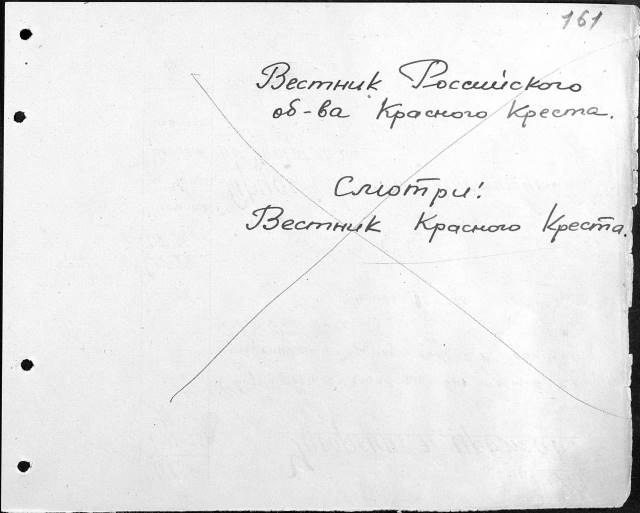 161
Вестник Российского
об-ва Красного Креста.
Смотри!
Вестник Красного Креста.